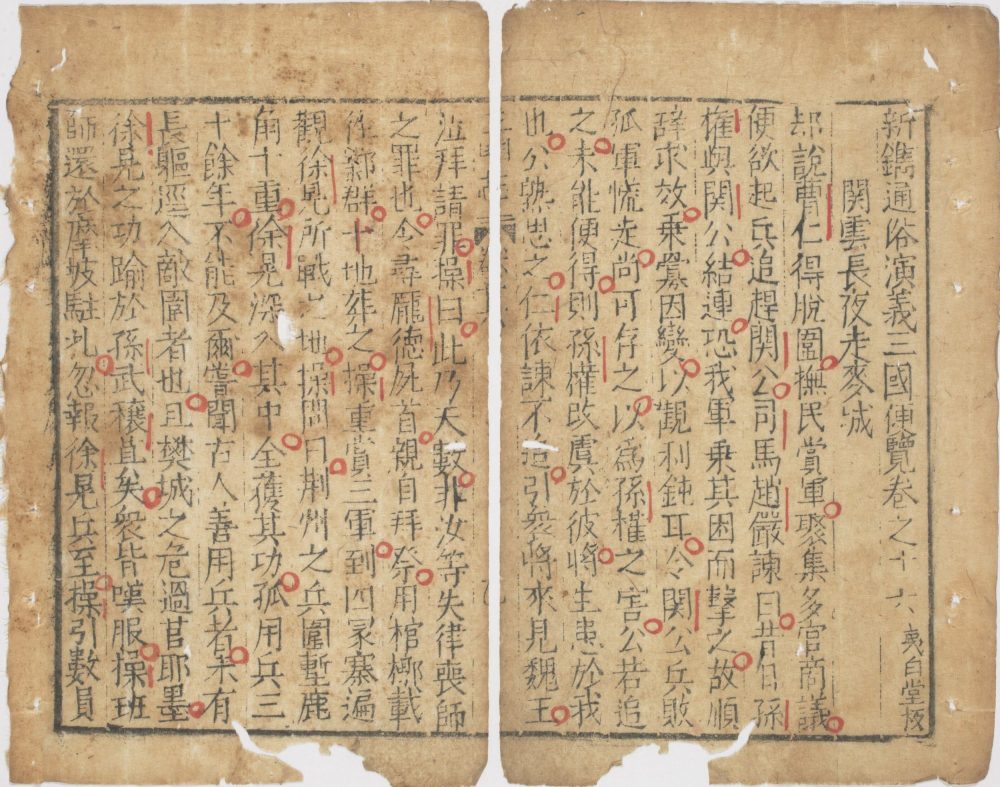 新鐫通俗演義三國便覽卷之十六 夷白堂校
關雲長夜走麥城
却說曹仁得脫圍撫民賞軍聚集多官商議
便欲起兵追趕關公司馬趙嚴諫曰昔日孫
權與關公結連恐我軍乘其困而擊之故順
辞求效乗釁因變以觀利鈍耳今關公兵敗
孤軍慌走尚可存之以為孫權之害公若追
之未能便得則孫權改虞於彼將生患於我
也公熟思之仁依諫不追引衆將來見魏王
泣拜請罪操曰此乃天數非汝等失律喪師
之罪也令尋龐德屍首親自拜祭用棺槨載
徃鄴群十地葬之操重賞三軍到四冢寨遍
觀徐晃所戰之地操問曰荆州之兵圍塹鹿
角十重徐晃深入其中全獲其功孤用兵三
十餘年不能及爾嘗聞古人善用兵者未有
長驅逕入敵圍者也且樊城之危過莒耶墨
徐晃之功踰於孫武穰苴矣衆皆嘆服操班
師還於摩坡駐扎忽報徐晃兵至操引數員